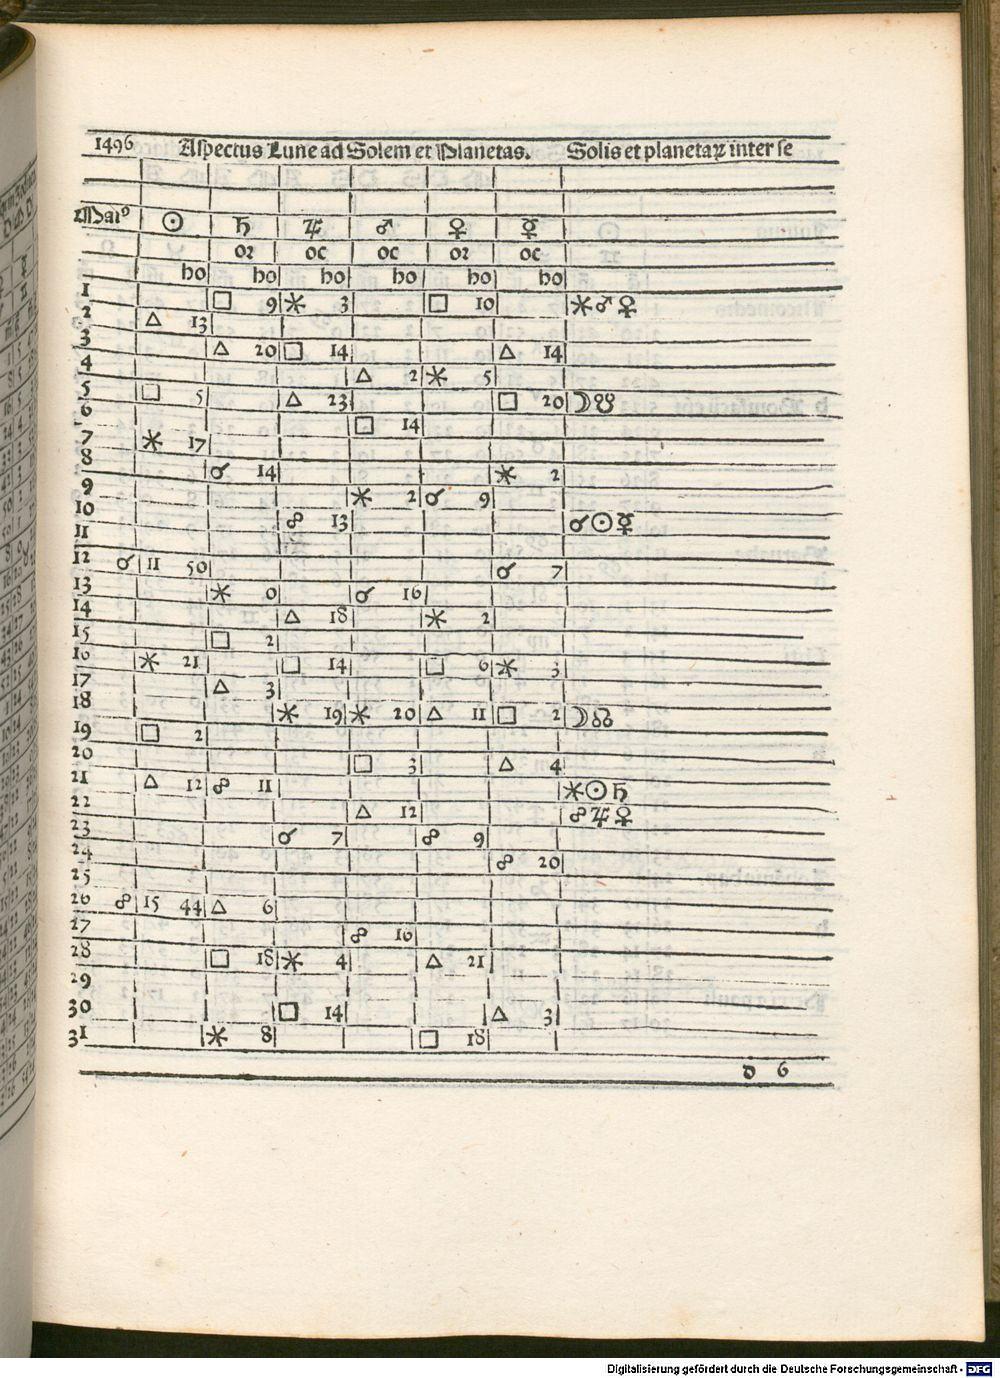 1496 Aspectus Lune ad Solem et Planetas. Solis et planetaꝝ inter se
Maiº ☉ ♄ ♃ ♂ ♀ ☿
oꝛ oc oc oꝛ oc
ho ho ho ho ho ho
1 □ 9 ⚹ 3 □ 10 ⚹♂♀
2 △ 13
3 △ 20 □ 14 △ 14
4 △ 2 ⚹ 5
5 □ 5 △ 23 □ 20 ☽☋
6 □ 14
7 ⚹ 17
8 ☌ 14 ⚹ 2
9 ⚹ 2 ☌ 9
10 ☍ 13 ☌☉☿
11
12 ☌ 11 50 ☌ 7
13 ⚹ 0 ☌ 16
14 △ 18 ⚹ 2
15 □ 2
16 ⚹ 21 □ 14 □ 6 ⚹ 3
17 △ 3
18 ⚹ 19 ⚹ 20 △ 11 □ 2 ☽☊
19 □ 2
20 □ 3 △ 4
21 △ 12 ☍ 11 ⚹☉♄
22 △ 12 ☍♃♀
23 ☌ 7 ☍ 9
24 ☍ 20
25
26 ☍ 15 44 △ 6
27 ☍ 16
28 □ 18 ⚹ 4 △ 21
29
30 □ 14 △ 3
31 ⚹ 8 □ 18
d 6
Digitalisierung gefördert durch die Deutsche Forschungsgemeinschaft - DFG